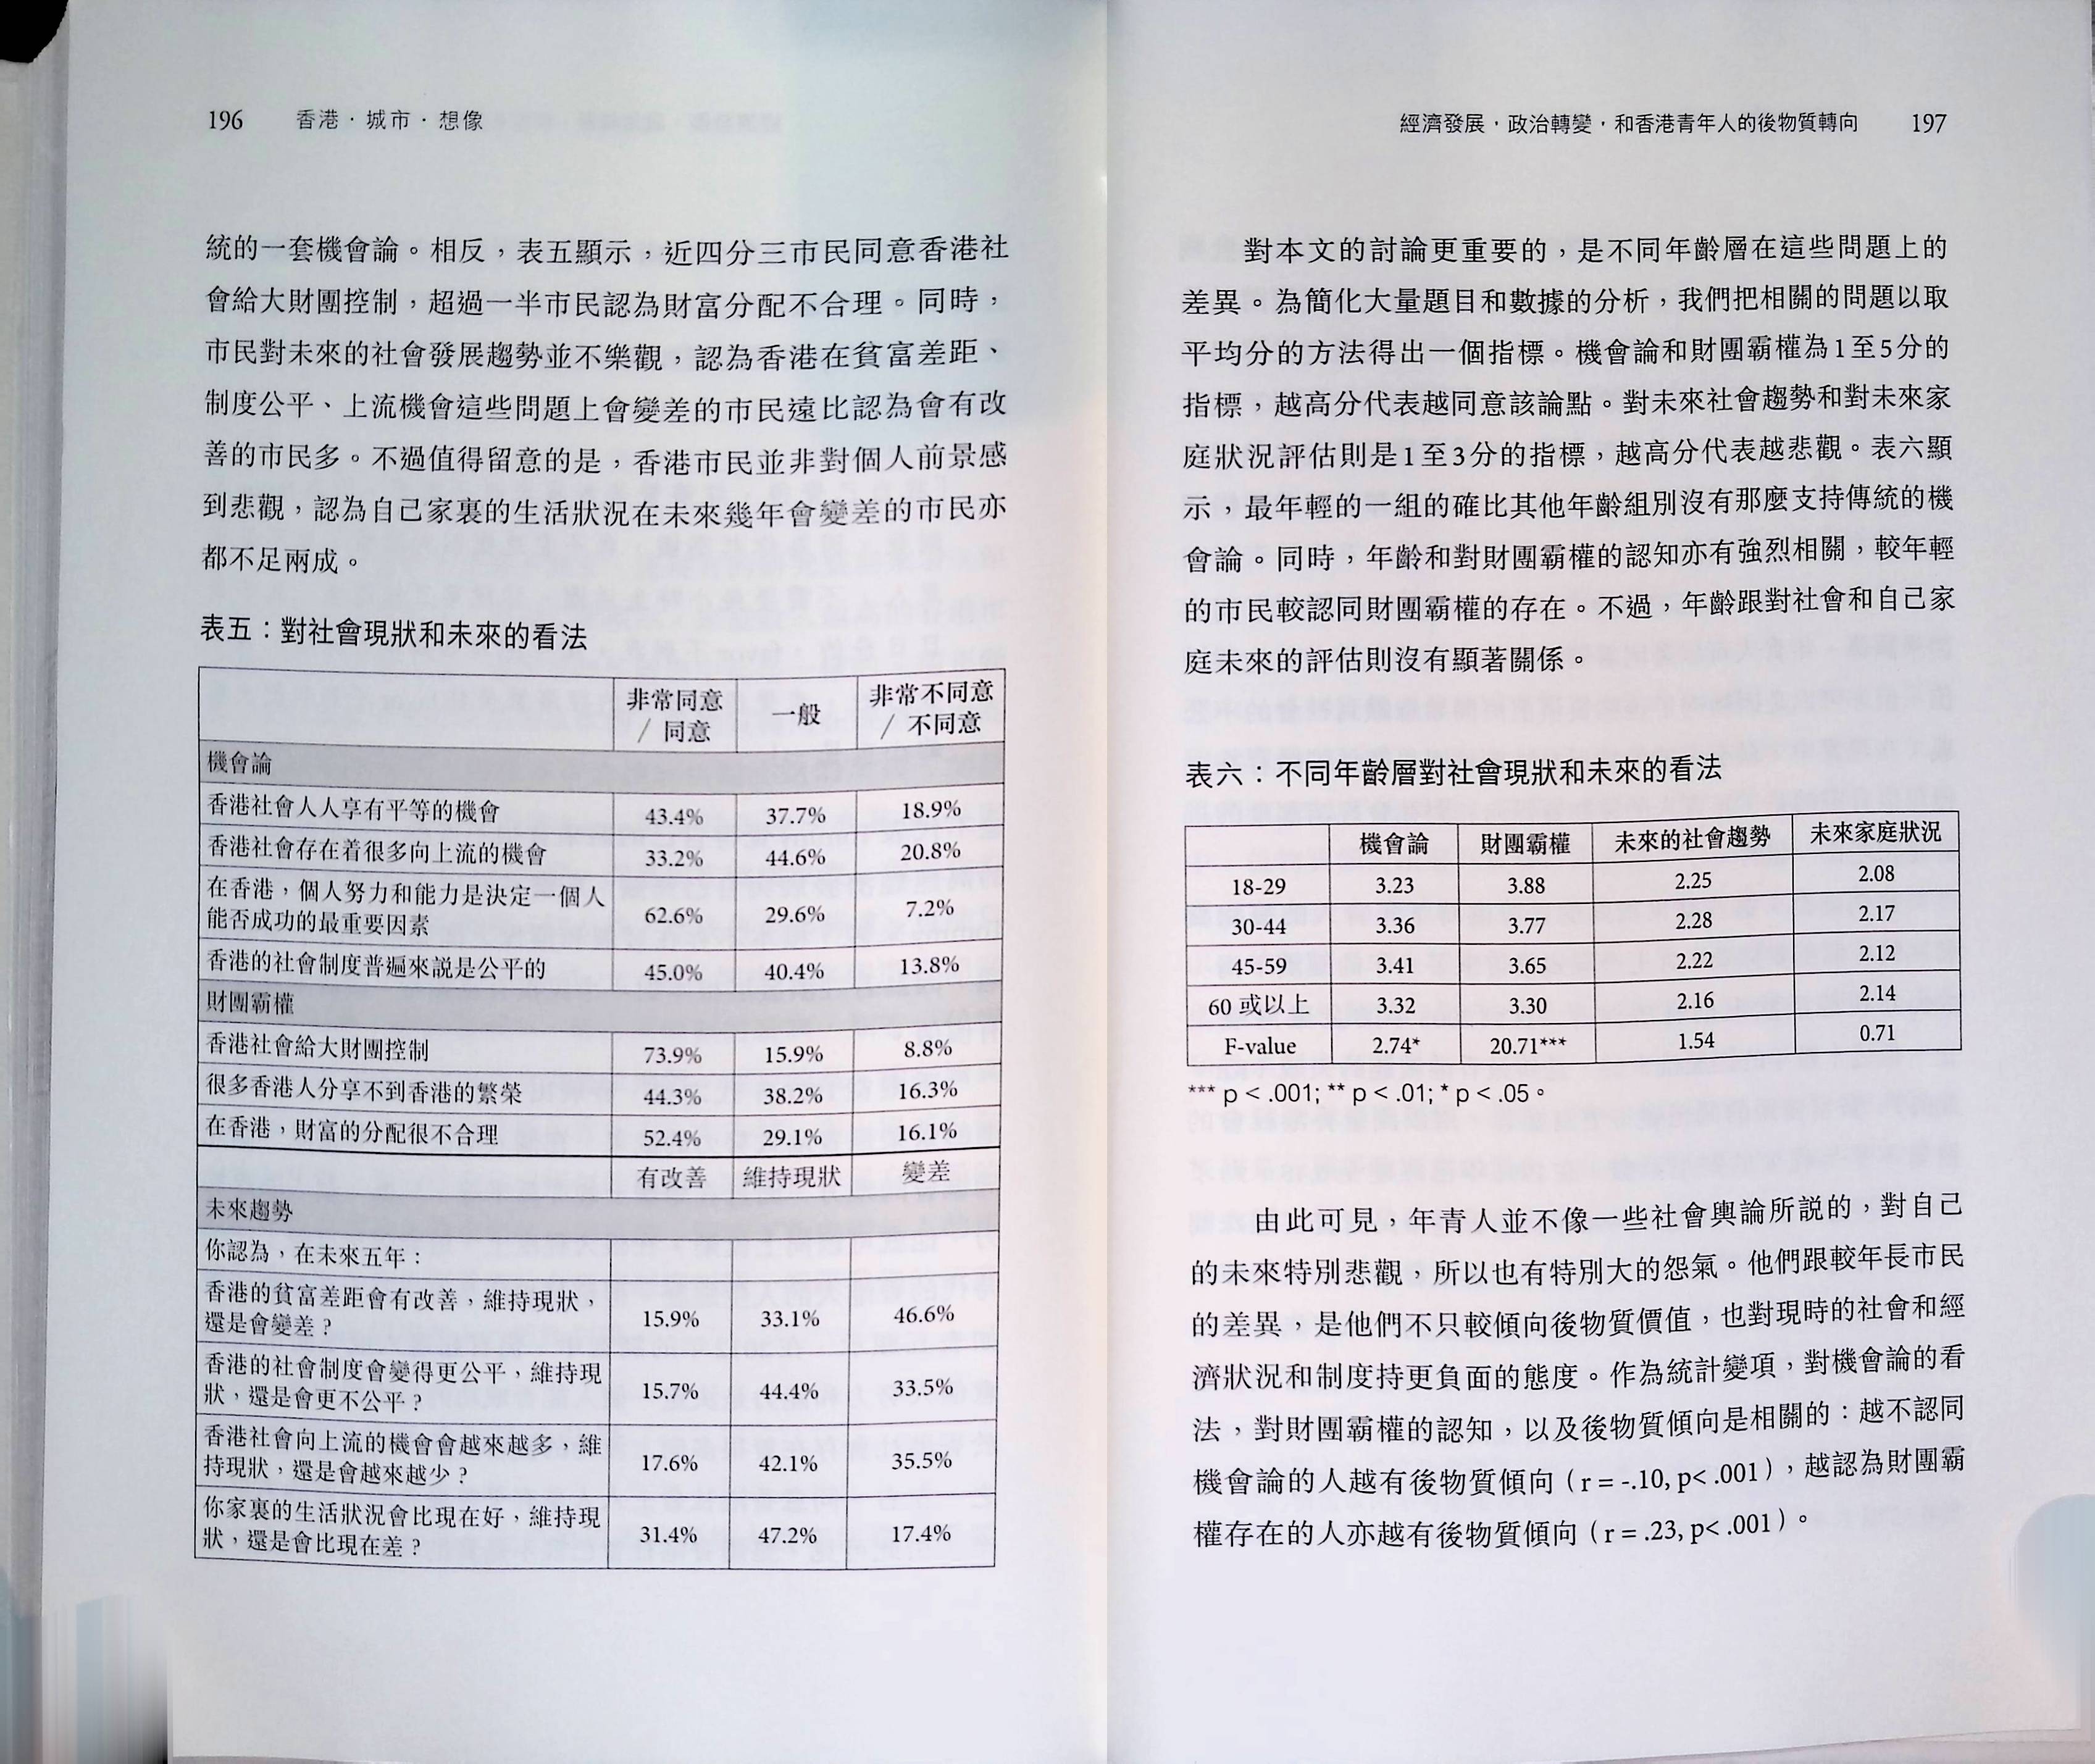 196 香港．城市．想像
統的一套機會論。相反，表五顯示，近四分三市民同意香港社
會給大財團控制，超過一半市民認為財富分配不合理。同時，
市民對未來的社會發展趨勢並不樂觀，認為香港在貧富差距、
制度公平、上流機會這些問題上會變差的市民遠比認為會有改
善的市民多。不過值得留意的是，香港市民並非對個人前景感
到悲觀，認為自己家裏的生活狀況在未來幾年會變差的市民亦
都不足兩成。
表五：對社會現狀和未來的看法
非常同意 / 同意 一般 非常不同意 / 不同意
機會論
香港社會人人享有平等的機會 43.4% 37.7% 18.9%
香港社會存在着很多向上流的機會 33.2% 44.6% 20.8%
在香港，個人努力和能力是決定一個人
能否成功的最重要因素 62.6% 29.6% 7.2%
香港的社會制度普遍來説是公平的 45.0% 40.4% 13.8%
財團霸權
香港社會給大財團控制 73.9% 15.9% 8.8%
很多香港人分享不到香港的繁榮 44.3% 38.2% 16.3%
在香港，財富的分配很不合理 52.4% 29.1% 16.1%
有改善 維持現狀 變差
未來趨勢
你認為，在未來五年：
香港的貧富差距會有改善，維持現狀，
還是會變差？ 15.9% 33.1% 46.6%
香港的社會制度會變得更公平，維持現
狀，還是會更不公平？ 15.7% 44.4% 33.5%
香港社會向上流的機會會越來越多，維
持現狀，還是會越來越少？ 17.6% 42.1% 35.5%
你家裏的生活狀況會比現在好，維持現
狀，還是會比現在差？ 31.4% 47.2% 17.4%
經濟發展．政治轉變．和香港青年人的後物質轉向 197
對本文的討論更重要的，是不同年齡層在這些問題上的
差異。為簡化大量題目和數據的分析，我們把相關的問題以取
平均分的方法得出一個指標。機會論和財團霸權為1至5分的
指標，越高分代表越同意該論點。對未來社會趨勢和對未來家
庭狀況評估則是1至3分的指標，越高分代表越悲觀。表六顯
示，最年輕的一組的確比其他年齡組別沒有那麼支持傳統的機
會論。同時，年齡和對財團霸權的認知亦有強烈相關，較年輕
的市民較認同財團霸權的存在。不過，年齡跟對社會和自己家
庭未來的評估則沒有顯著關係。
表六：不同年齡層對社會現狀和未來的看法
機會論 財團霸權 未來的社會趨勢 未來家庭狀況
18-29 3.23 3.88 2.25 2.08
30-44 3.36 3.77 2.28 2.17
45-59 3.41 3.65 2.22 2.12
60 或以上 3.32 3.30 2.16 2.14
F-value 2.74* 20.71*** 1.54 0.71
*** p < .001; ** p < .01; * p < .05。
由此可見，年青人並不像一些社會輿論所説的，對自己
的未來特別悲觀，所以也有特別大的怨氣。他們跟較年長市民
的差異，是他們不只較傾向後物質價值，也對現時的社會和經
濟狀況和制度持更負面的態度。作為統計變項，對機會論的看
法，對財團霸權的認知，以及後物質傾向是相關的：越不認同
機會論的人越有後物質傾向（r = -.10, p< .001），越認為財團霸
權存在的人亦越有後物質傾向（r = .23, p< .001）。